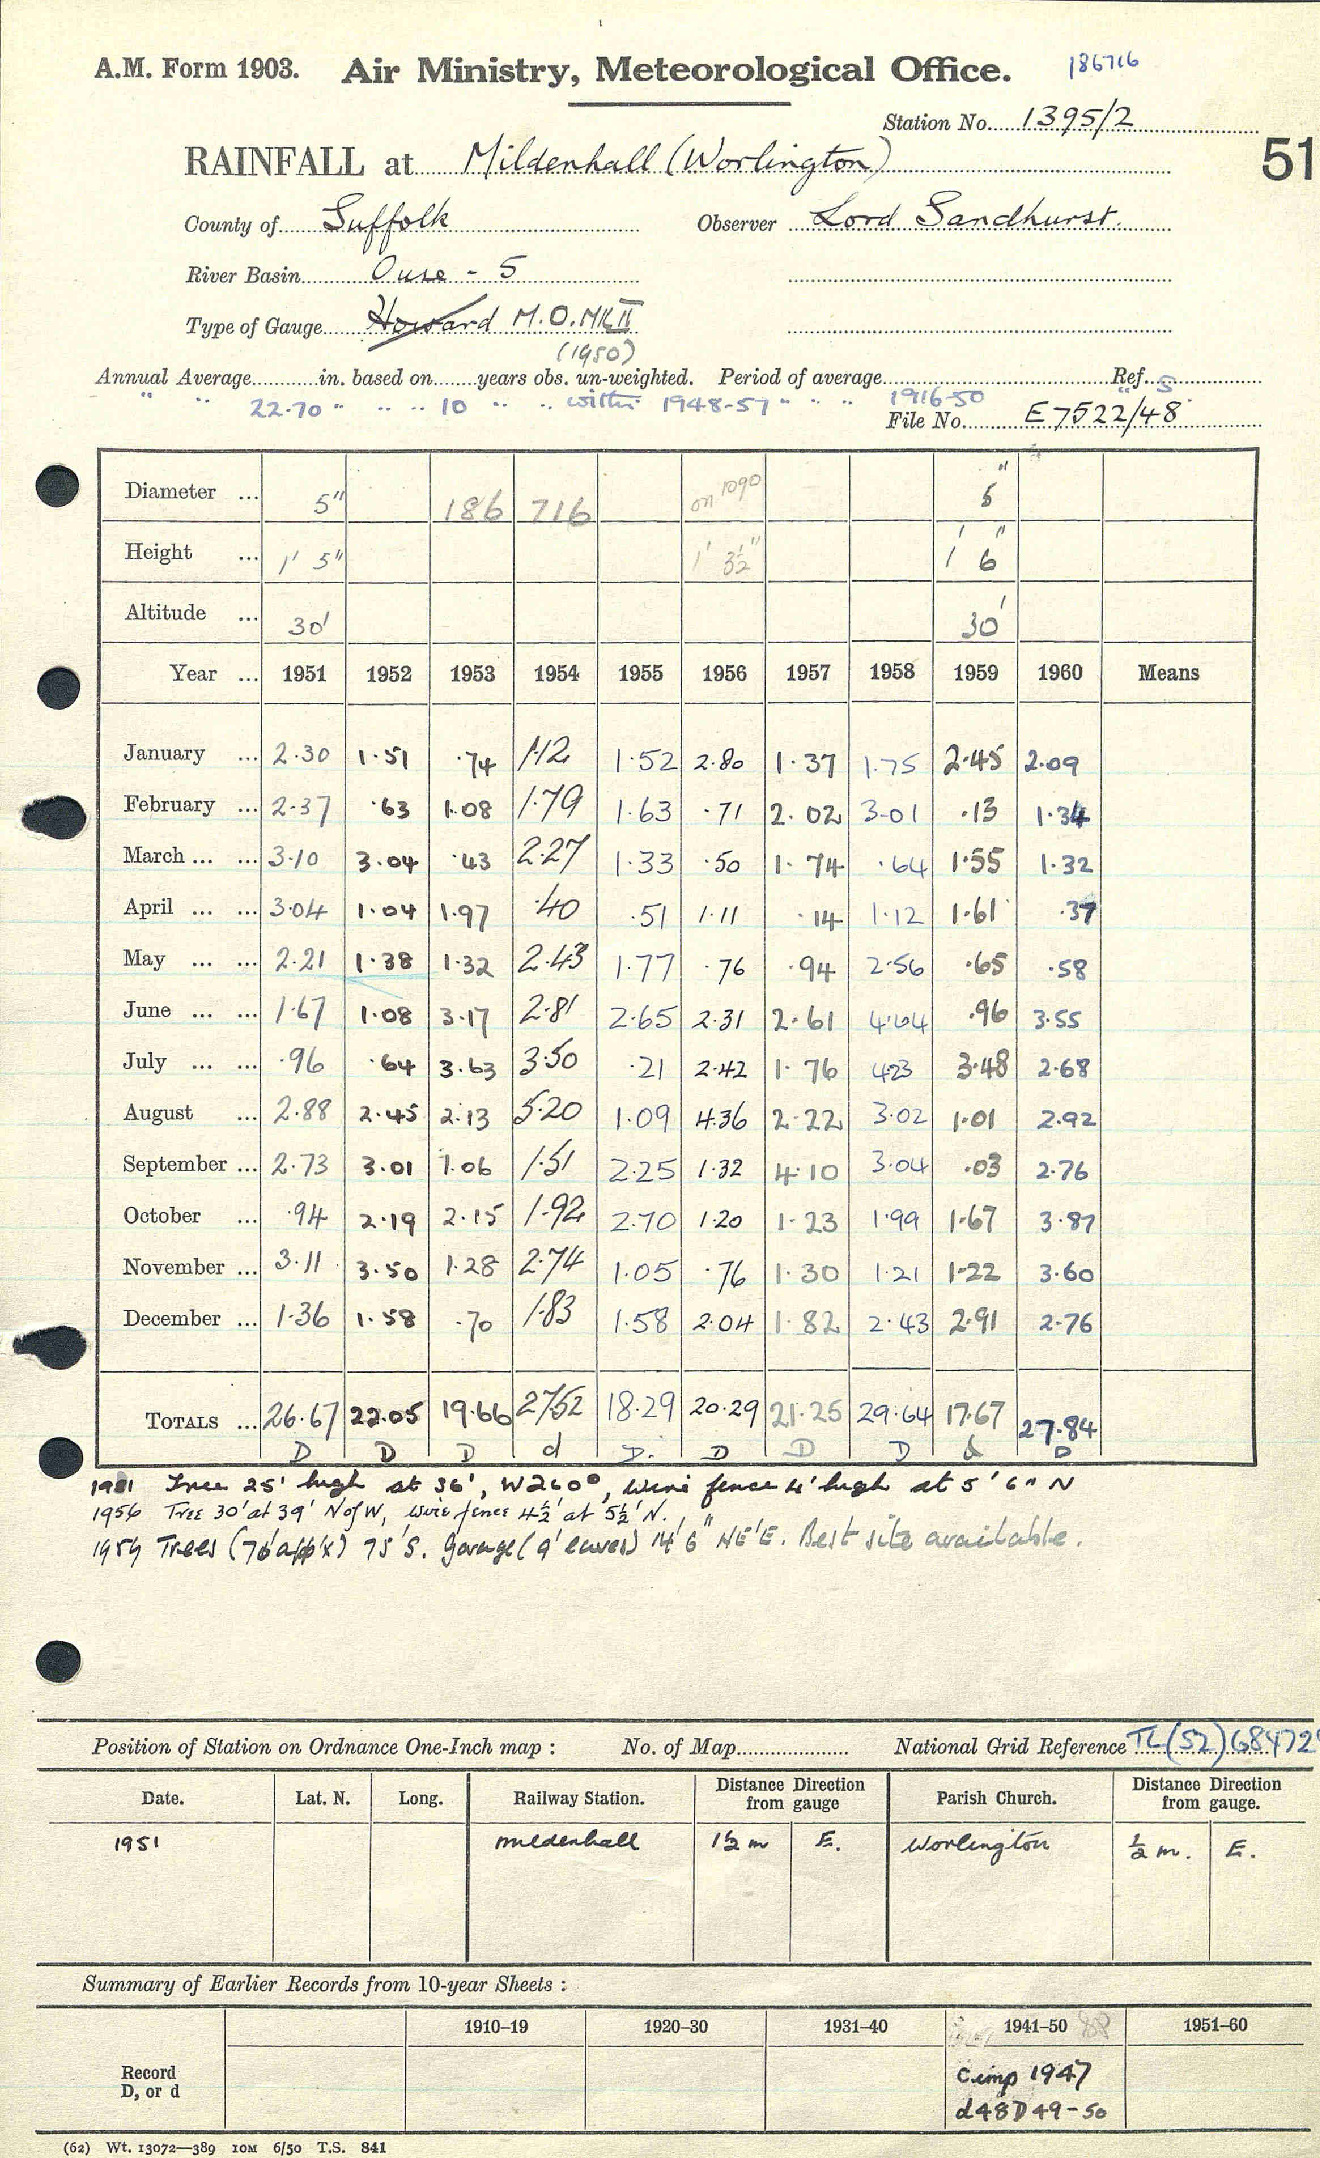 A.M. Form 1903. Air Ministry, Meteorological Office. 186716
Station No. 1395/2
51
RAINFALL at Mildenhall (Worlington)
County of Suffolk Observer Lord Sandhurst.
River Basin Ouse - 5
Type of Gauge Howard M.O. MK II
(1950)
Annual Average in. based on years obs. un-weighted. Period of average Ref. 5
" " 22.70 " " " 10 " " within 1948-57 " " " 1916-50 "
File No. E7522/48
Diameter ... 5" 186 716 on 1090 5"
Height ... 1' 5" 1' 3½" 1' 6"
Altitude ... 30' 30'
Year ... 1951 1952 1953 1954 1955 1956 1957 1958 1959 1960 Means
January ... 2.30 1.51 .74 1.12 1.52 2.80 1.37 1.75 2.45 2.09
February ... 2.37 .63 1.08 1.79 1.63 .71 2.02 3.01 .13 1.34
March ... ... 3.10 3.04 .43 2.27 1.33 .50 1.74 .64 1.55 1.32
April ... ... 3.04 1.04 1.97 .40 .51 1.11 .14 1.12 1.61 .37
May ... ... 2.21 1.38 1.32 2.43 1.77 .76 .94 2.56 .65 .58
June ... ... 1.67 1.08 3.17 2.81 2.65 2.31 2.61 4.64 .96 3.55
July ... ... .96 .64 3.63 3.50 .21 2.42 1.76 4.23 3.48 2.68
August ... 2.88 2.45 2.13 5.20 1.09 4.36 2.22 3.02 1.01 2.92
September ... 2.73 3.01 1.06 1.51 2.25 1.32 4.10 3.04 .03 2.76
October ... .94 2.19 2.15 1.92 2.70 1.20 1.23 1.99 1.67 3.87
November ... 3.11 3.50 1.28 2.74 1.05 .76 1.30 1.21 1.22 3.60
December ... 1.36 1.58 .70 1.83 1.58 2.04 1.82 2.43 2.91 2.76
TOTALS ... 26.67 22.05 19.66 27.52 18.29 20.29 21.25 29.64 17.67 27.84
D D D d D. D D D d D
1951 Tree 25' high at 36', W260°, wire fence 4' high at 5' 6" N
1956 Tree 30' at 39' N of W, wire fence 4½' at 5½' N.
1959 Trees (70' app'x) 75' S. garage (9' eaves) 14' 6" NE'E. Best site available.
Position of Station on Ordnance One-Inch map : No. of Map National Grid Reference TL (52) 684729
Date. Lat. N. Long. Railway Station. Distance Direction from gauge Parish Church. Distance Direction from gauge.
1951 Mildenhall 1½ m E. Worlington ½ m. E.
Summary of Earlier Records from 10-year Sheets :
1910–19 1920–30 1931–40 1941–50 1951–60
Record D, or d
Comp 1947
d48 D49-50
(62) Wt. 13072—389 10M 6/50 T.S. 841